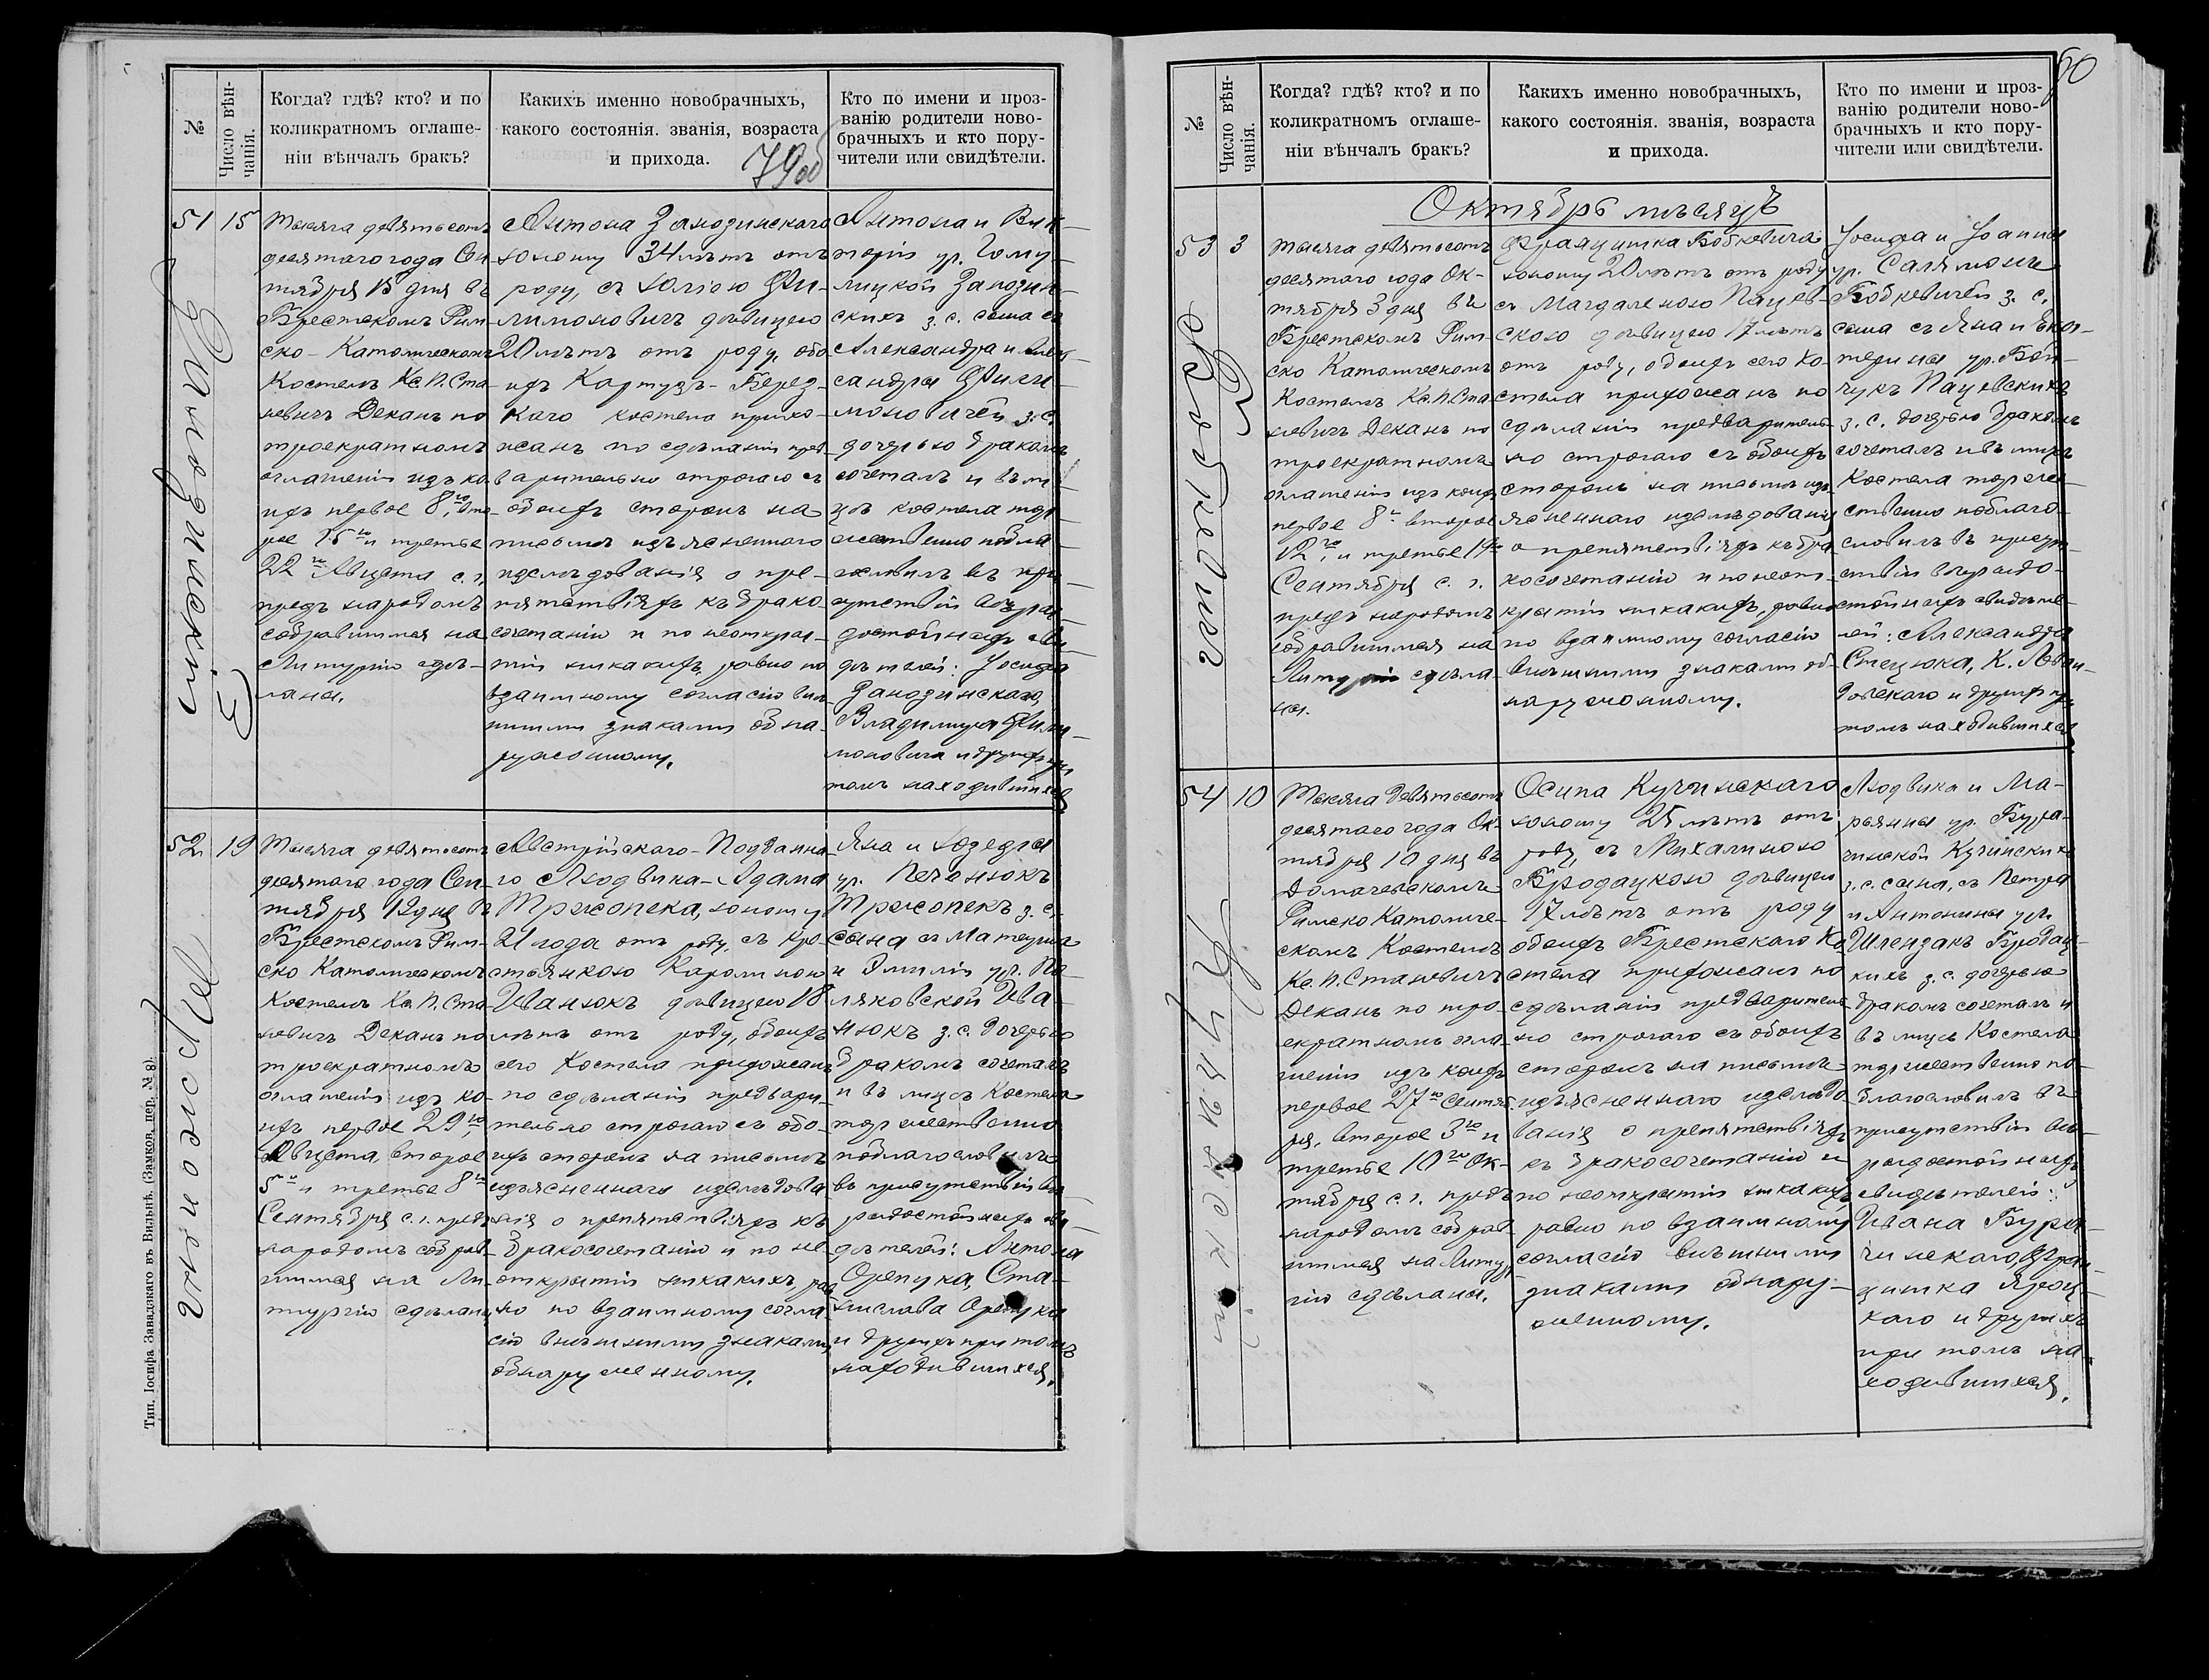 №
Число вѣн-
чанія.
Когда? гдѣ? кто? и по
коликратномъ оглаше-
ніи вѣнчалъ бракъ?
Какихъ именно новобрачныхъ,
какого состоянія. званія, возраста
и прихода.
79об
Кто по имени и проз-
ванію родители ново-
брачныхъ и кто пору-
чители или свидѣтели.
51
15
Тысяча девятьсотъ
десятаго года Сен
тября 15 дня въ
Брестскомъ Рим
ско-Католическомъ
Костелѣ Кс. П. Ста
невичъ Деканъ по
троекратномъ
оглашеніи изъ ко
ихъ первое 8го, вто
рое 15го и третье
22го Августа с. г.
предъ народомъ
собравшимся на
Литургію сдѣ-
ланы.
Антона Занозинскаго
юношу 34 лѣтъ отъ
роду, съ Юліею Фи-
лимоновичъ дѣвицею
20 лѣтъ отъ роду, обо
ихъ Картузъ-Берез-
каго костела прихо-
жанъ по сдѣланіи пред
варительно строгаго съ
обоихъ сторонъ на
письмѣ изъясненнаго
изслѣдованія о пре-
пятствіяхъ къ брако-
сочетанію и по неоткры-
тіи никакихъ, равно по
взаимному согласію внѣ-
шними знаками обна-
руженному.
Антона и Вик-
торіи ур.
лицкой Занозин-
скихъ з. с. сына съ
Александра и Алек
сандры Фили-
моновичей з. с.
дочерью бракомъ
сочеталъ и въ ли
цѣ костела тор
жественно побла
гословилъ въ при-
сутствіи вѣры
достойныхъ сви
дѣтелей: Іосифа
Занозинскаго,
Владимира Фили
моновича и другихъ при
томъ находившихся
Занозинскій
52
19
Тысяча девятьсотъ
десятаго года Сен-
тября 12 дня въ
Брестскомъ Рим-
ско Католическомъ
Костелѣ Кс. П. Ста
невичъ Деканъ по
троекратномъ
оглашеніи изъ ко-
ихъ первое 29го,
Августа, второе
5го и третье 8го
Сентября с. г. предъ
народомъ собрав-
шимся на Ли-
тургію сдѣланы
Австрійскаго-Подданна
го Людвика-Адама
Тржопека, юношу
21 года отъ роду, съ кре-
стьянкою Каролиною
Иванюкъ дѣвицею 18
лѣтъ отъ роду, обоихъ
сего Костела прихожанъ
по сдѣланіи предвари-
тельно строгаго съ обо-
ихъ сторонъ на письмѣ
изъясненнаго изслѣдова
нія о препятствіяхъ къ
бракосочетанію и по не-
открытіи никакихъ рав
но по взаимному согла
сію внѣшними знаками
обнаруженному.
Яна и Юзефы
ур. Печенюкъ
Тржопекъ з. с.
сына съ Матеуша
и Эмиліи ур. По-
ляковской Ива-
нюкъ з. с. дочерью
бракомъ сочеталъ
и въ лицѣ Костела
торжественно
поблагословилъ
въ присутствіи вѣ
рыдостойныхъ сви
дѣтелей: Антона
Орепука, Ста-
нислава Орепука
и другихъ при томъ
находившихся.
Тржопекъ
Тип. Іосифа Завадзкаго въ Вильнѣ. (Замков. пер. № 8).
60
№
Число вѣн-
чанія.
Когда? гдѣ? кто? и по
коликратномъ оглаше-
ніи вѣнчалъ бракъ?
Какихъ именно новобрачныхъ,
какого состоянія. званія, возраста
и прихода.
Кто по имени и проз-
ванію родители ново-
брачныхъ и кто пору-
чители или свидѣтели.
Октябрь мѣсяцъ
53
3
Тысяча девятьсотъ
десятаго года Ок-
тября 3 дня въ
Брестскомъ Рим-
ско Католическомъ
Костелѣ Кс. П. Ста
невичъ Деканъ по
троекратномъ
оглашеніи изъ коихъ
первое 8го второе
12го, и третье 19го
Сентября с. г.
предъ народомъ
собравшимся на
Литургію сдѣла-
ны.
Францишка Бобкевича
юношу 20 лѣтъ отъ роду
съ Магдаленою Пацев-
скою дѣвицею 17 лѣтъ
отъ роду, обоихъ сего Ко-
стела прихожанъ по
сдѣланіи предваритель-
но строгаго съ обоихъ
сторонъ на письмѣ изъ-
ясненнаго изслѣдованія
о препятствіяхъ къ бра
косочетанію и по неот-
крытіи никакихъ, равно
по взаимному согласію
внѣшними знаками об-
наруженному.
Іосифа и Іоанны
ур. Салямонъ
Бобкевичей з. с.
сына съ Яна и Ека-
терины ур. Бой-
чукъ Пацевскихъ
з. с. дочерью бракомъ
сочеталъ и въ лицѣ
Костела торже-
ственно поблаго-
словилъ въ присут-
ствіи вѣрыдо-
стойныхъ свидѣте-
лей: Александра
Стецюка, К. Леван-
довскаго и другихъ при
томъ находившихся
Бобкевичъ
54
10
Тысяча девятьсотъ
десятаго года Ок-
тября 10 дня въ
Домачевскомъ
Римско Католиче-
скомъ Костелѣ
Кс. П. Станевичъ
Деканъ по тро-
екратномъ огла-
шеніи изъ коихъ
первое 27го Сентяб-
ря, второе 3го и
третье 10го Ок-
тября с. г. предъ
народомъ собрав-
шимся на Литур
гію сдѣланы.
Осипа Кучинскаго
юношу 25 лѣтъ отъ
роду, съ Михалиною
Бродацкою дѣвицею
17 лѣтъ отъ роду
обоихъ Брестскаго Ко-
стела прихожанъ по
сдѣланіи предваритель
но строгаго съ обоихъ
сторонъ на письмѣ
изъясненнаго изслѣдо
ванія о препятствіяхъ
къ бракосочетанію и
по неоткрытіи никакихъ,
равно по взаимному
согласію внѣшними
знаками обнару-
женному.
Людвика и Ма-
рьянны ур. Бура-
чинской Кучинскихъ
з. с. сына, съ Петра
и Антонины ур.
Шлензакъ Бродац-
кихъ з. с. дочерью
бракомъ сочеталъ и
въ лицѣ Костела
торжественно по-
благословилъ въ
присутствіи вѣ-
рыдостойныхъ
свидѣтелей:
Ивана Бура-
чинскаго, Фран-
цишка Яроц-
каго и другихъ
при томъ на-
ходившихся.
Кучинскій